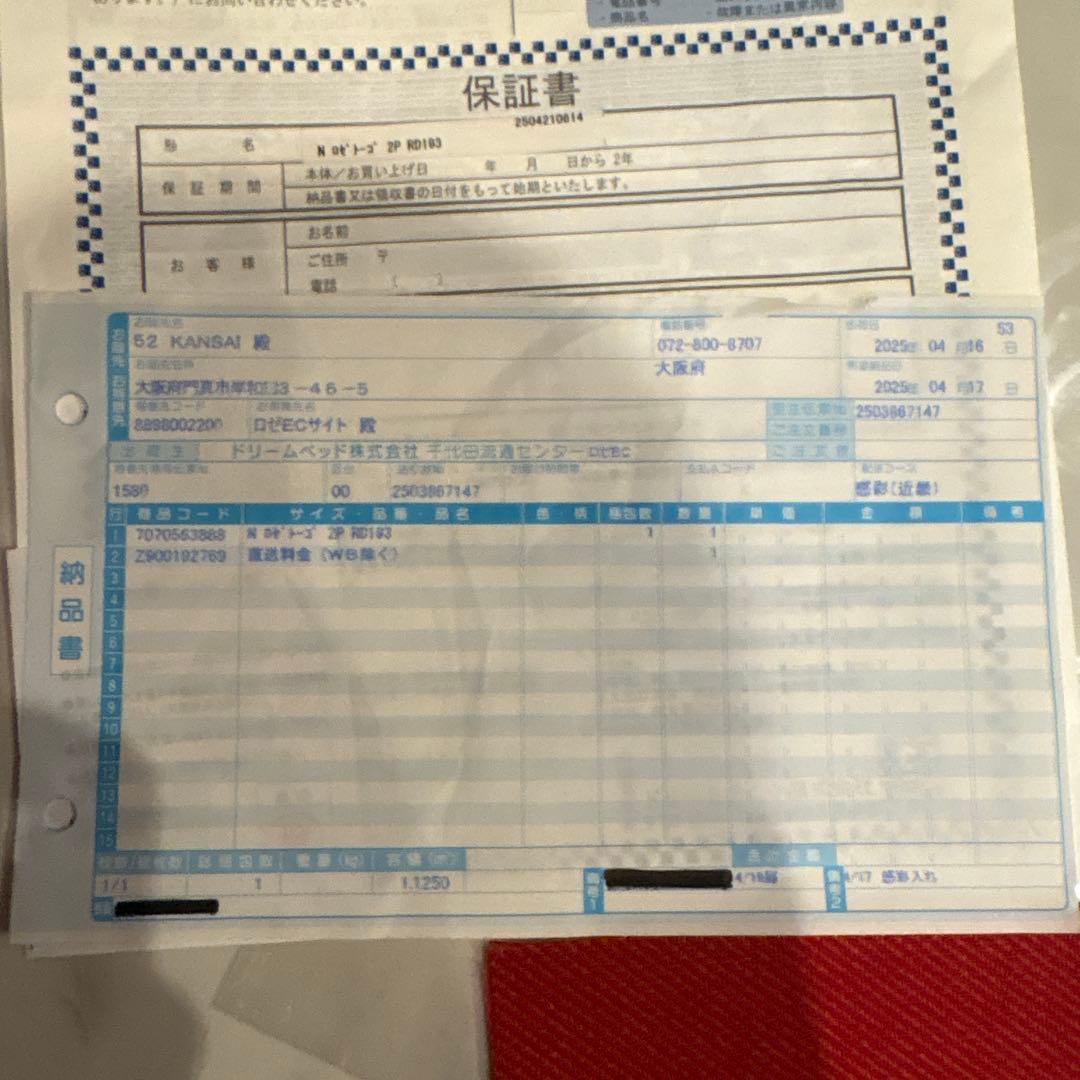 にお問い合わせください。
・電話番号
・商品名 ・故障または異常内容
保証書
2504210614
形 名 N ロゼトーゴ 2P RD193
保証期間 本体/お買い上げ日 年 月 日から 2年
納品書又は領収書の日付をもって始期といたします。
お客様 お名前
ご住所 〒
電話 ( )
S3
52 KANSAI 殿 電話番号 072-800-8707 2025年 04月16日
大阪府
大阪府門真市岸和田3-46-5 2025年 04月17日
8898002200 ロゼECサイト 殿 受注伝票№ 2503867147
ご注文番号
出荷主 ドリームベッド株式会社 千代田流通センター ロゼEC
区分 支払人コード 配送コース
1580 00 2503867147 感彩(近畿)
行 商品コード サイズ・品種・品名 色・柄 梱包数 数量 単価 金額 備考
1 7070563888 N ロゼトーゴ 2P RD193 1 1
2 Z900192769 直送料金(WB除く) 1
3
4
5
6
7
8
9
10
11
12
13
14
15
納品書
総梱包数 重量(kg) 容積(㎥) 合計金額
1/1 1 1.1250
備考1 4/16
備考2 4/17 感彩入れ